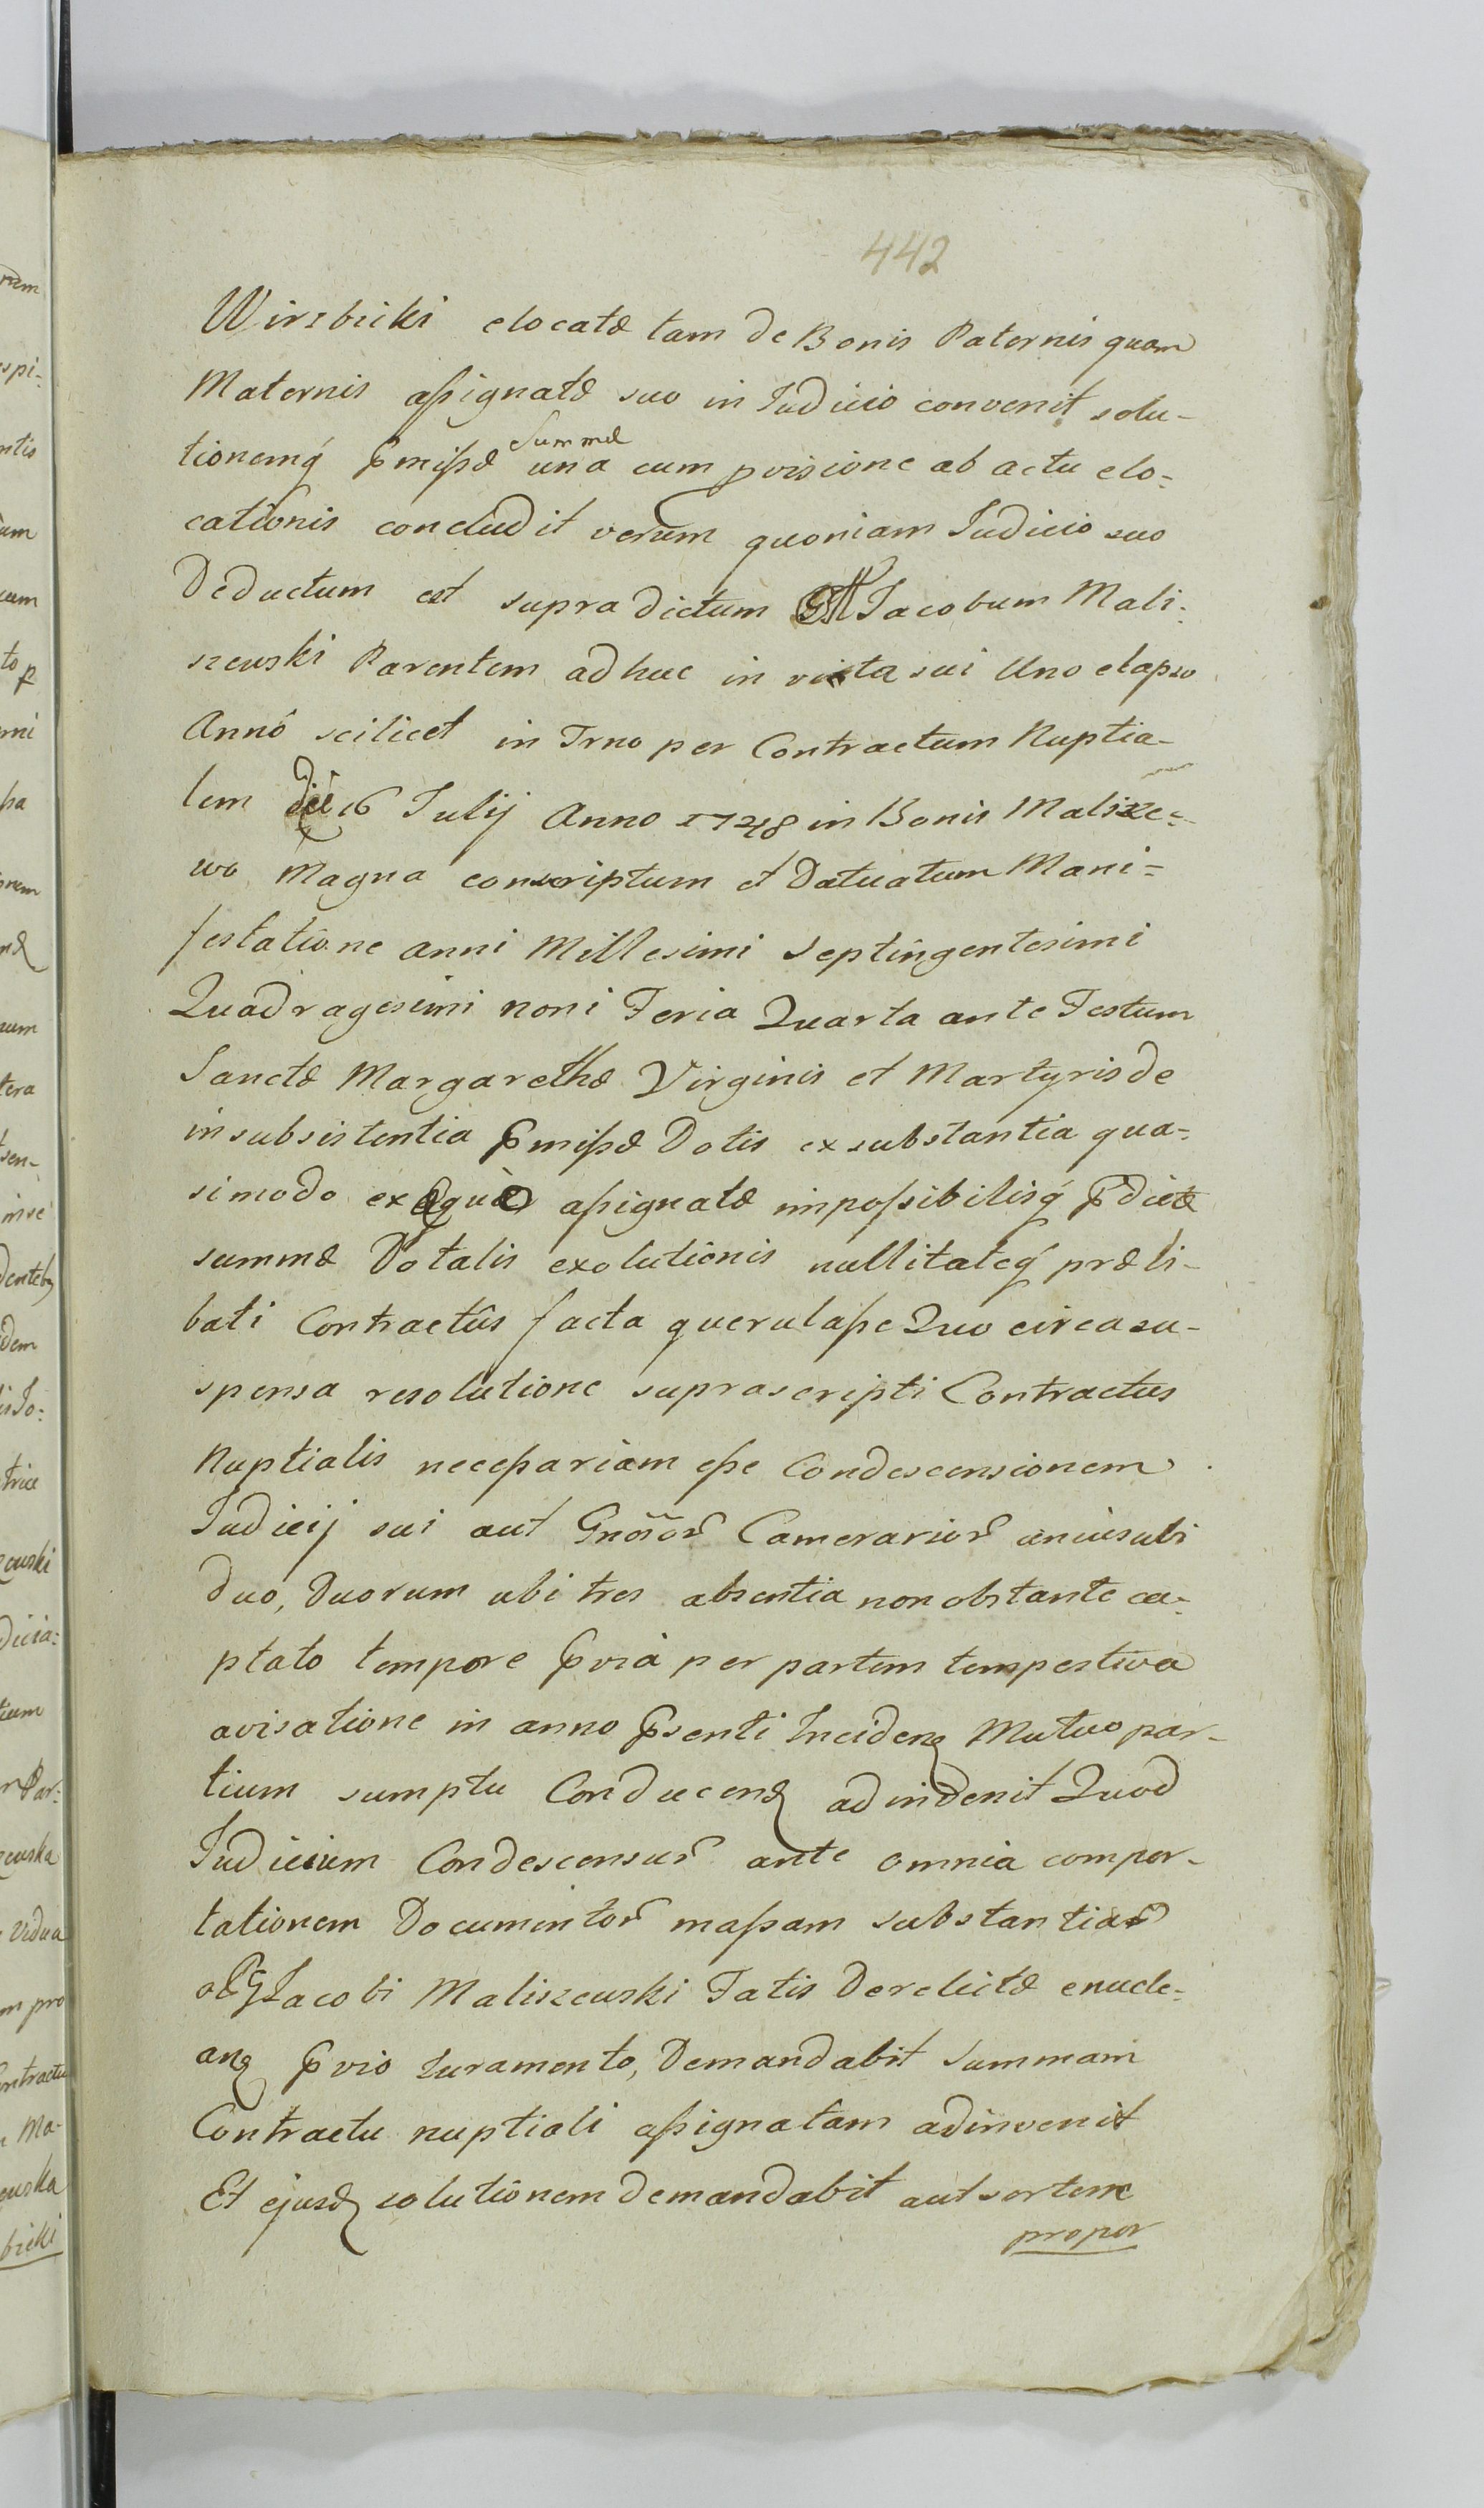 442
Wirzbicki elocatæ tam de Bonis Paternis quam
Maternis assignatæ suo in Judicio convenit solu-
tionemq́ p̃missæ Summæ una cum pvisione ab actu elo=
cationis concludit verum quoniam Judicio suo
Deductum est supradictum Jacobum Mali=
szewski Parentem adhuc in vita sui Uno elapso
Annô scilicet in Trno per Contractum Nuptia-
lem die 16 Julij Anno 1748 in Bonis Malisze=
wo Magna conscriptum et Datuatum Mani=
festatione anni Millesimi Septingentesimi
Quadragesimi noni Feria Quarta ante Festum
Sanctæ Margarethæ Virginis et Martyris de
insubsistentia p̃missæ Dotis ex substantia qua=
simodo exæquè assignatæ impossibilisq́ p̃dictæ
summæ Dotalis exolutionis nullitateq́ præli-
bati Contractûs facta querulasse Quo circa su-
spensa resolutione suprascripti Contractus
Nuptialis necessariam esse Condescensionem
Judicij sui aut Gnõsor̃ Camerarior̃ unius ubi
duo, Duorum ubi tres absentia non obstante ca=
ptato tempore p̃via per partem tempestiva
avisatione in anno p̃senti Inciden̄ Mutuo par-
tium sumptu Conducend̄ adindenit Quod
Judicium Condescensor̃ ante omnia compor-
tationem Documintor̃ massam substantiar̃
olG Jacobi Maliszewski Fatis Derelictæ enucle=
an̄ p̃vio Juramento, Demandabit Summam
Contractu nuptiali assignatam adinvenit
Et ejusd̄ solutionem demandabit aut sortem
propor